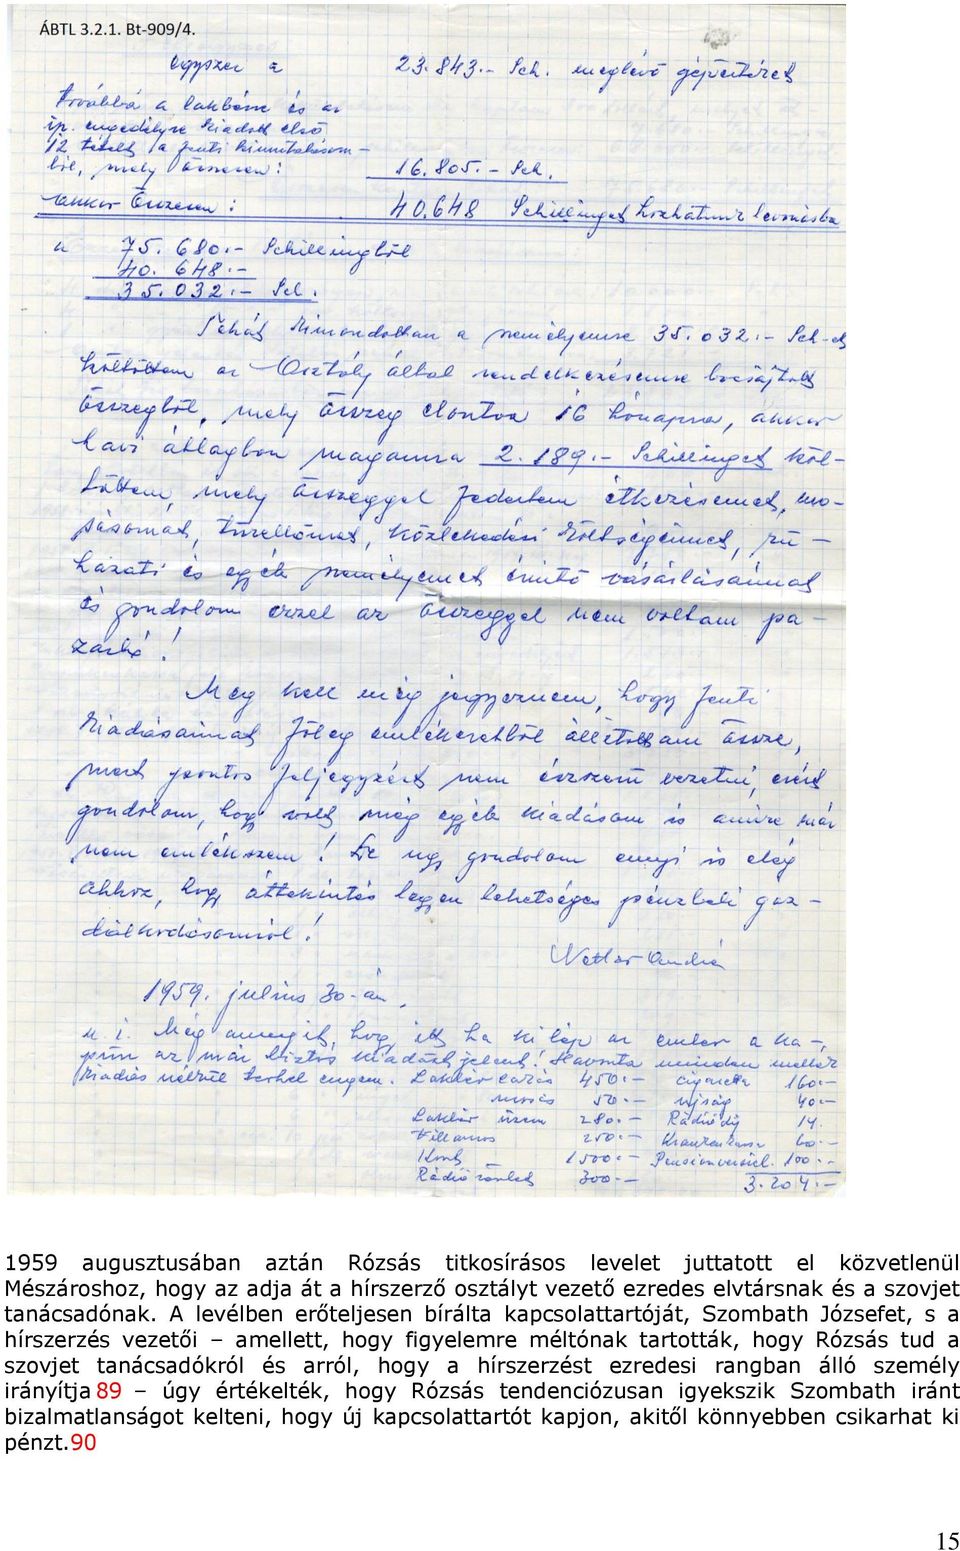 ÁBTL 3.2.1. Bt-909/4.
egyszer a 23.843.- Sch. meglévő gépértéket
továbbá a lakbérre és az
ip. engedélyre kiadott első
12 tételt a fenti kimutatásom-
ból, mely összesen: 16.805.- Sch.
akkor összesen: 40.648 Schillinget hozhatunk levonásba
a 75.680.- Schillingből
40.648.-
35.032.- Sch.
Tehát kimondottan a személyemre 35.032.- Sch-et
költöttem az Osztály által rendelkezésemre bocsájtott
összegből, mely összeg elosztva 16 hónapra, akkor
havi átlagban magamra 2.189.- Schillinget köl-
töttem, mely összeggel fedeztem étkezésemet, mo-
sásomat, tüzelőmet, közlekedési költségeimet, ru-
házati és egyéb személyemet érintő vásárlásaimat
és gondolom ezzel az összeggel nem voltam pa-
zarló!
Meg kell még jegyeznem, hogy fenti
kiadásaimat főleg emlékezetből állítottam össze,
mert pontos feljegyzést nem vezetni, ezért
gondolom, hogy volt még egyéb kiadásom is amire már
nem emlékszem! De úgy gondolom ennyi is elég
ahhoz, hogy áttekintés legyen lehetséges pénzbeli gaz-
dálkodásomról!
1959. július 30-án.
u.i. Még annyit, hogy itt ha kilép az ember a ka-
pun az már biztos kiadást jelent! Havonta minden mellék
kiadás nélkül terhel engem. Lakbér 450.- cigaretta 160.-
mosás 50.- ujság 40.-
Lakbér üzem 280.- Rádió díj 14.
Villamos 250.- Krankenkasse 60.-
Koszt 1500.- Pensionversich. 100.-
Rádió részlet 300.- 3.204.-
1959 augusztusában aztán Rózsás titkosírásos levelet juttatott el közvetlenül
Mészároshoz, hogy az adja át a hírszerző osztályt vezető ezredes elvtársnak és a szovjet
tanácsadónak. A levélben erőteljesen bírálta kapcsolattartóját, Szombath Józsefet, s a
hírszerzés vezetői – amellett, hogy figyelemre méltónak tartották, hogy Rózsás tud a
szovjet tanácsadókról és arról, hogy a hírszerzést ezredesi rangban álló személy
irányítja 89 – úgy értékelték, hogy Rózsás tendenciózusan igyekszik Szombath iránt
bizalmatlanságot kelteni, hogy új kapcsolattartót kapjon, akitől könnyebben csikarhat ki
pénzt.90
15